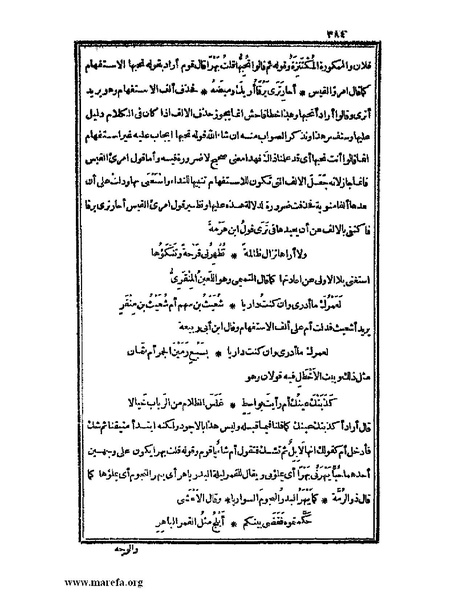 ٣٨٤
فلان والممكورة المُكْتَنِزَةُ وقوله ثم قالوا تُحِبُّها قلتُ بَهْرًا قال قوم أراد بقوله تحبها الاستفهام
كما قال امرؤ القيس * أحارِ تَرَى بَرْقًا أُرِيكَ وَمِيضَهُ * فحذف ألف الاستفهام وهو يريد
أترى وقالوا أراد أتحبها وهذا خطأ فاحش انما يجوز حذف الالف اذا كان فى الكلام دليل
عليها وسنفسر هذا ونذكر الصواب منه ان شاء الله قوله تحبها ايجاب عليه غير استفهام
انما قالوا أنت تحبها أى قد علمنا ذاك فهذا معنى صحيح لا ضرورة فيه وأما قول امرئ القيس
فانما جاز لانه جعل الالف التى تكون للاستفهام تنبيها للنداء واستغنى بها ودلت على أن
بعدها ألفا منوية فحذفت ضرورة لدلالة هذه عليها ونظير قول امرئ القيس أحار ترى برقا
فاكتفى بالالف عن أن يعيدها فى ترى قولُ ابن هَرْمة
ولا أراها تزال ظالمة * تُظهرلى قرحة وتَنْكَؤُها
استغنى بلا الاولى عن اعادتها كما قال التميمى وهو اللعين المِنْقَرِىُّ
لَعَمْرُكَ ما أدرى وان كنت داريا * شُعَيْثُ بن سهم أم شُعَيْثُ بن مِنْقَر
يريد أشعيث فدلت أم على ألف الاستفهام وقال ابن أبى ربيعة
لعمرك ما أدرى وان كنت داريا * بسَبْعٍ رَمَيْنَ الجمر أم بثمان
مثل ذلك وبيت الاَخْطَل فيه قولان وهو
كَذَبَتْكَ عينُك أم رأيتَ بواسطٍ * غَلَسَ الظلام من الرَّباب خيالا
قال أراد أكذبتك عينك كما قلنا فيما قبله وليس هذا بالاجود ولكنه ابتدأ متيقنا ثم شك
فأدخل أم كقولك انها لابل ثم تشك فتقول أم شاء يا قوم وقوله قلت بهرا يكون على وجهين
أحدهما حُبًّا يَبْهَرُنى بَهْرًا أى يملؤنى ويقال للقمر ليلة البدر باهر أى يبهر النجوم أى يملؤها كما
قال ذو الرُّمَّة * كما يَبْهَرُ البدرُ النجومَ السواريا * وقال الاَعْشَى
حَكَّمتموه فَقَضَى بينكم * أَبْلَجُ مثلُ القمر الباهِر
والوجه
www.marefa.org